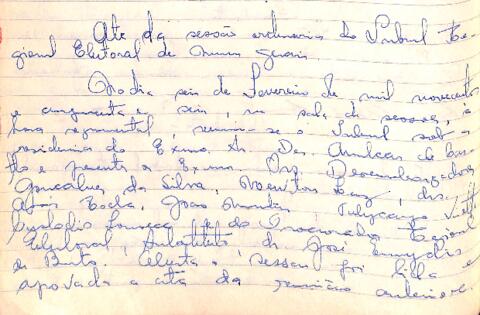 Ata da sessão ordinaria do Tribunal Re-
gional Eleitoral de Minas Gerais.
No dia seis de Fevereiro de mil novecentos
e cincoenta e seis, na sala de sessões, à
hora regimental, reuniu-se o Tribunal sob a
presidencia do Exmo. Sr. Des. Amilcar de Cas-
tro e presentes os Exmos. Srs. Desembargadores
Gonçalves da Silva, Merolino drs.
Afonso João Martins
Custodio Fonseca e do Procurador Regional
Eleitoral, Substituto dr. José
de Brito. Aberta a sessão foi lida e
apovada a ata da reunião anterior.